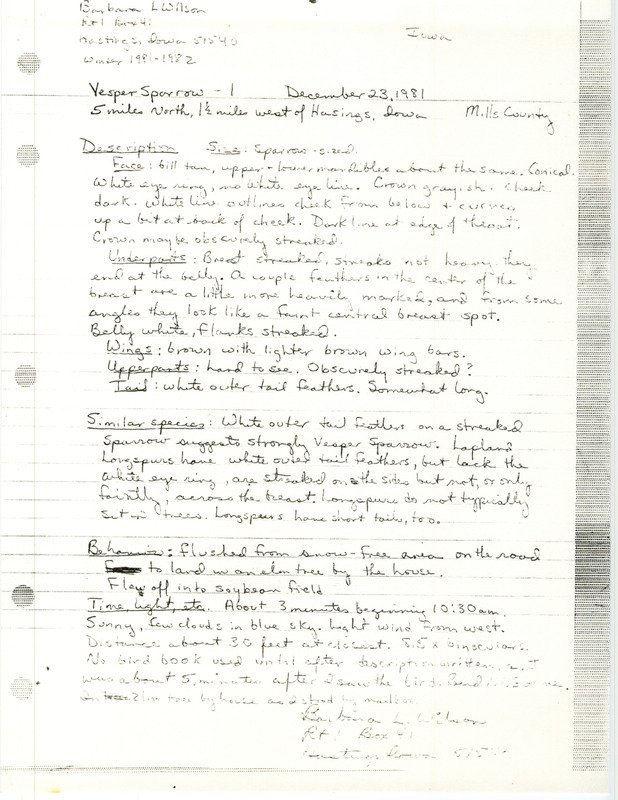 Barbara L Wilson
Rt 1 Box 41
Hastings, Iowa 51540
Iowa
Winter 1981-1982
Vesper Sparrow - 1 December 23, 1981
5 miles North, 1½ miles west of Hasings, Iowa Mills County
Description Size: Sparrow-sized.
Face: bill tan, upper + lower mandibles about the same. Conical.
White eye ring, no white eye line. Crown grayish. Cheek
dark. White line outlines cheek from below + curves
up a bit at back of cheek. Dark line at edge of throat.
Crown maybe obscurely streaked.
Underparts: Breast streaked, streaks not heavy. They
end at the belly. A couple feathers in the center of the
breast are a little more heavily marked, and from some
angles they look like a faint central breast spot.
Belly white, flanks streaked.
Wings: brown with lighter brown wing bars.
Upperparts: hard to see. Obscurely streaked?
Tail: white outer tail feathers. Somewhat long.
Similar species: White outer tail feathers on a streaked
sparrow suggests strongly Vesper Sparrow. Lapland
Longspurs have white outer tail feathers, but lack the
white eye ring, are streaked on the sides but not, or only
faintly, across the breast. Longspurs do not typically
set in trees. Longspurs have short tails, too.
Behavior: flushed from snow-free area on the road
to land in an elm tree by the house.
Flew off into soybean field
Time, light, etc. About 3 minutes beginning 10:30 am.
Sunny, few clouds in blue sky. Light wind from west.
Distance about 30 feet at closest. 8.5 x binoculars.
No bird book used until after description written,
was about 5 minutes after I saw the bird. Bird
in elm tree by house as I stood by mailbox.
Barbara L. Wilson
Rt 1 Box 41
Hastings Iowa 51540